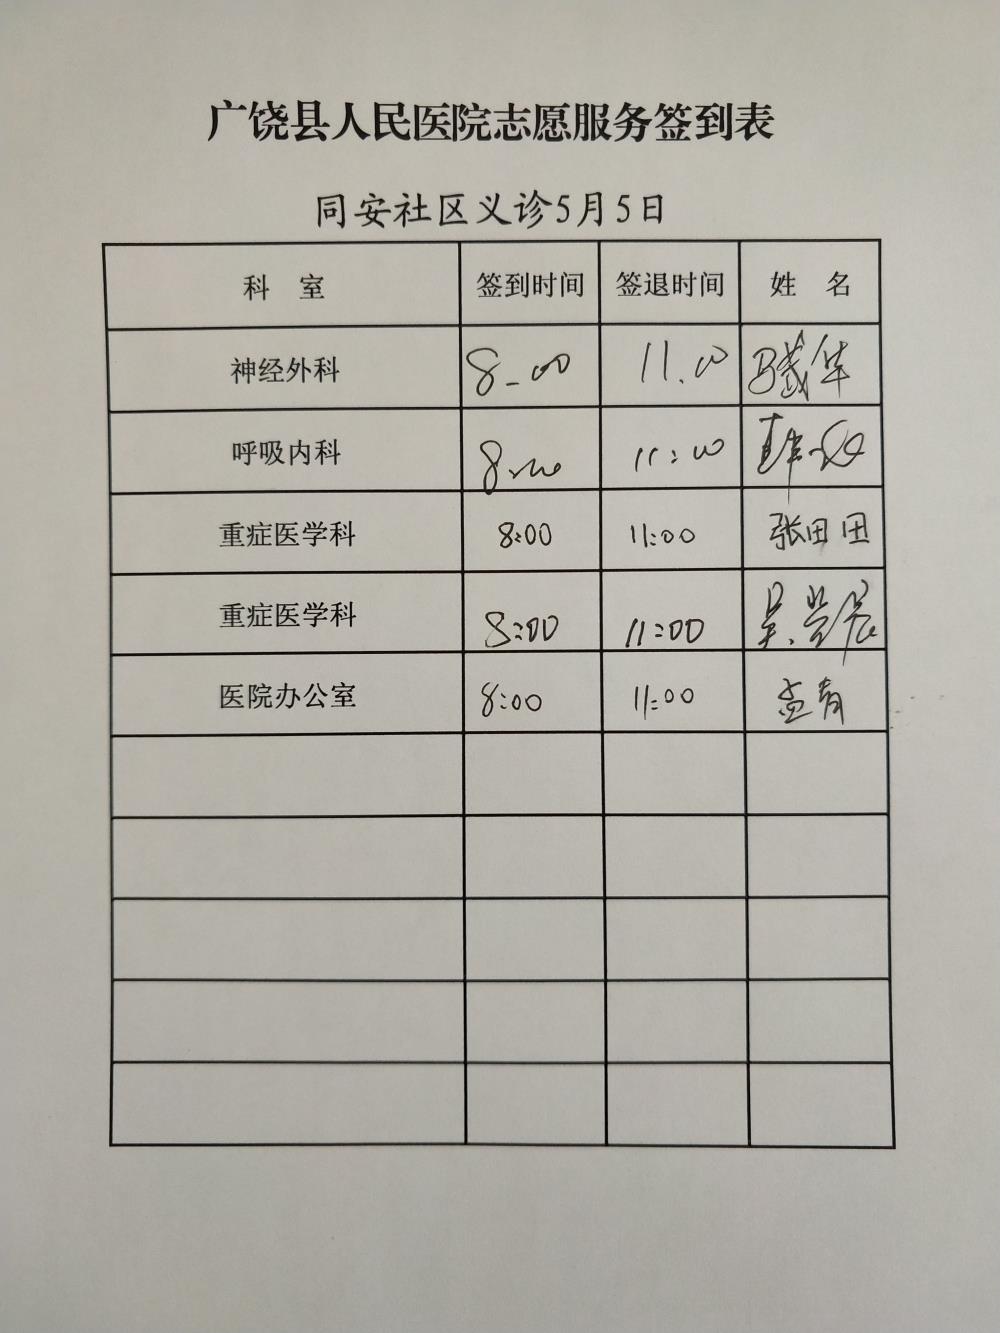 广饶县人民医院志愿服务签到表
同安社区义诊5月5日
科 室 签到时间 签退时间 姓 名
神经外科 8-00 11.00 华
呼吸内科 8:00 11:00
重症医学科 8:00 11:00 张田田
重症医学科 8:00 11:00 吴
医院办公室 8:00 11:00 孟青